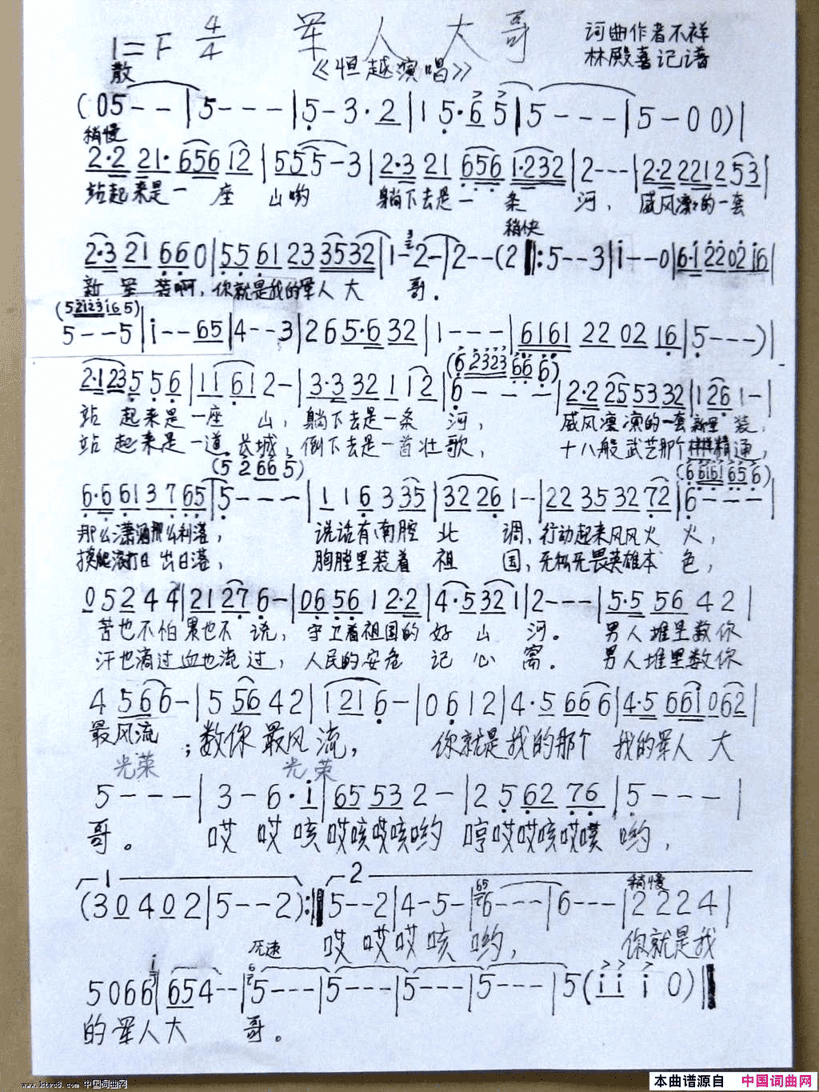 1=F 4/4 军人大哥 词曲作者不祥
《恒越演唱》 林殿喜记谱
散
(05--|5---|5-3·2|15·65|5---|5-00)|
稍慢
2·2 21·656 12|555-3|2·3 21 656 1·232|2---|2·2 2212 53|
站起来是一座 山哟 躺下去是一条 河，威风凛凛的一套
稍快
2·3 21 660|55 61 23 3532|1-2-|2--(2‖:5--3|i--0|6·i 22 02 i6|
新军装啊，你就是我的军人大 哥。
(5 2123 i65)
5--5|i--65|4--3|265·632|1---|6161 22 02 16|5---)|
(6 2323 66 6)
2·123 5 5 6|11 61 2-|3·3 32 11 2|6---|2·2 25 53 32|126 1-|
站 起来是一座 山，躺下去是一条 河， 威风凛凛的一套新军装，
站 起来是一道长城，倒下去是一首壮歌， 十八般武艺那个样样精通，
(5 2 66 5) (6 6161 656)
6·6 613 7 65|5---|116 3 35|32 26 1-|22 35 32 72|6---|
那么潇洒那么利落， 说话有南腔北 调，行动起来风风火 火，
摸爬滚打日出日落， 胸膛里装着祖 国，无私无畏英雄本 色，
05244|21 27 6-|06 56 1 2·2|4·5 32 1|2---|5·5 56 42|
苦也不怕累也不说，守卫着祖国的好山 河。 男人堆里数你
汗也滴过血也流过，人民的安危 记心窝。 男人堆里数你
4 566-|5 56 42|1216-|0612|4·5 66 6|4·5 661 062|
最风流；数你最风流， 你就是我的那个 我的军人大
光荣 光荣
5---|3-6·i|65 53 2-|25 62 76|5---|
哥。 哎 哎咳哎咳哎咳哟 哼哎哎咳哎噗 哟，
1 2
(30402|5--2):‖5--2|4-5-|6---|6---|稍慢 2224|
哎哎哎咳 哟， 你就是我
无速
5066|654--|5---|5---|5---|5---|5(i i i 0)‖
的军人大 哥。
www.ktvc8.com 中国词曲网
本曲谱源自 中国词曲网